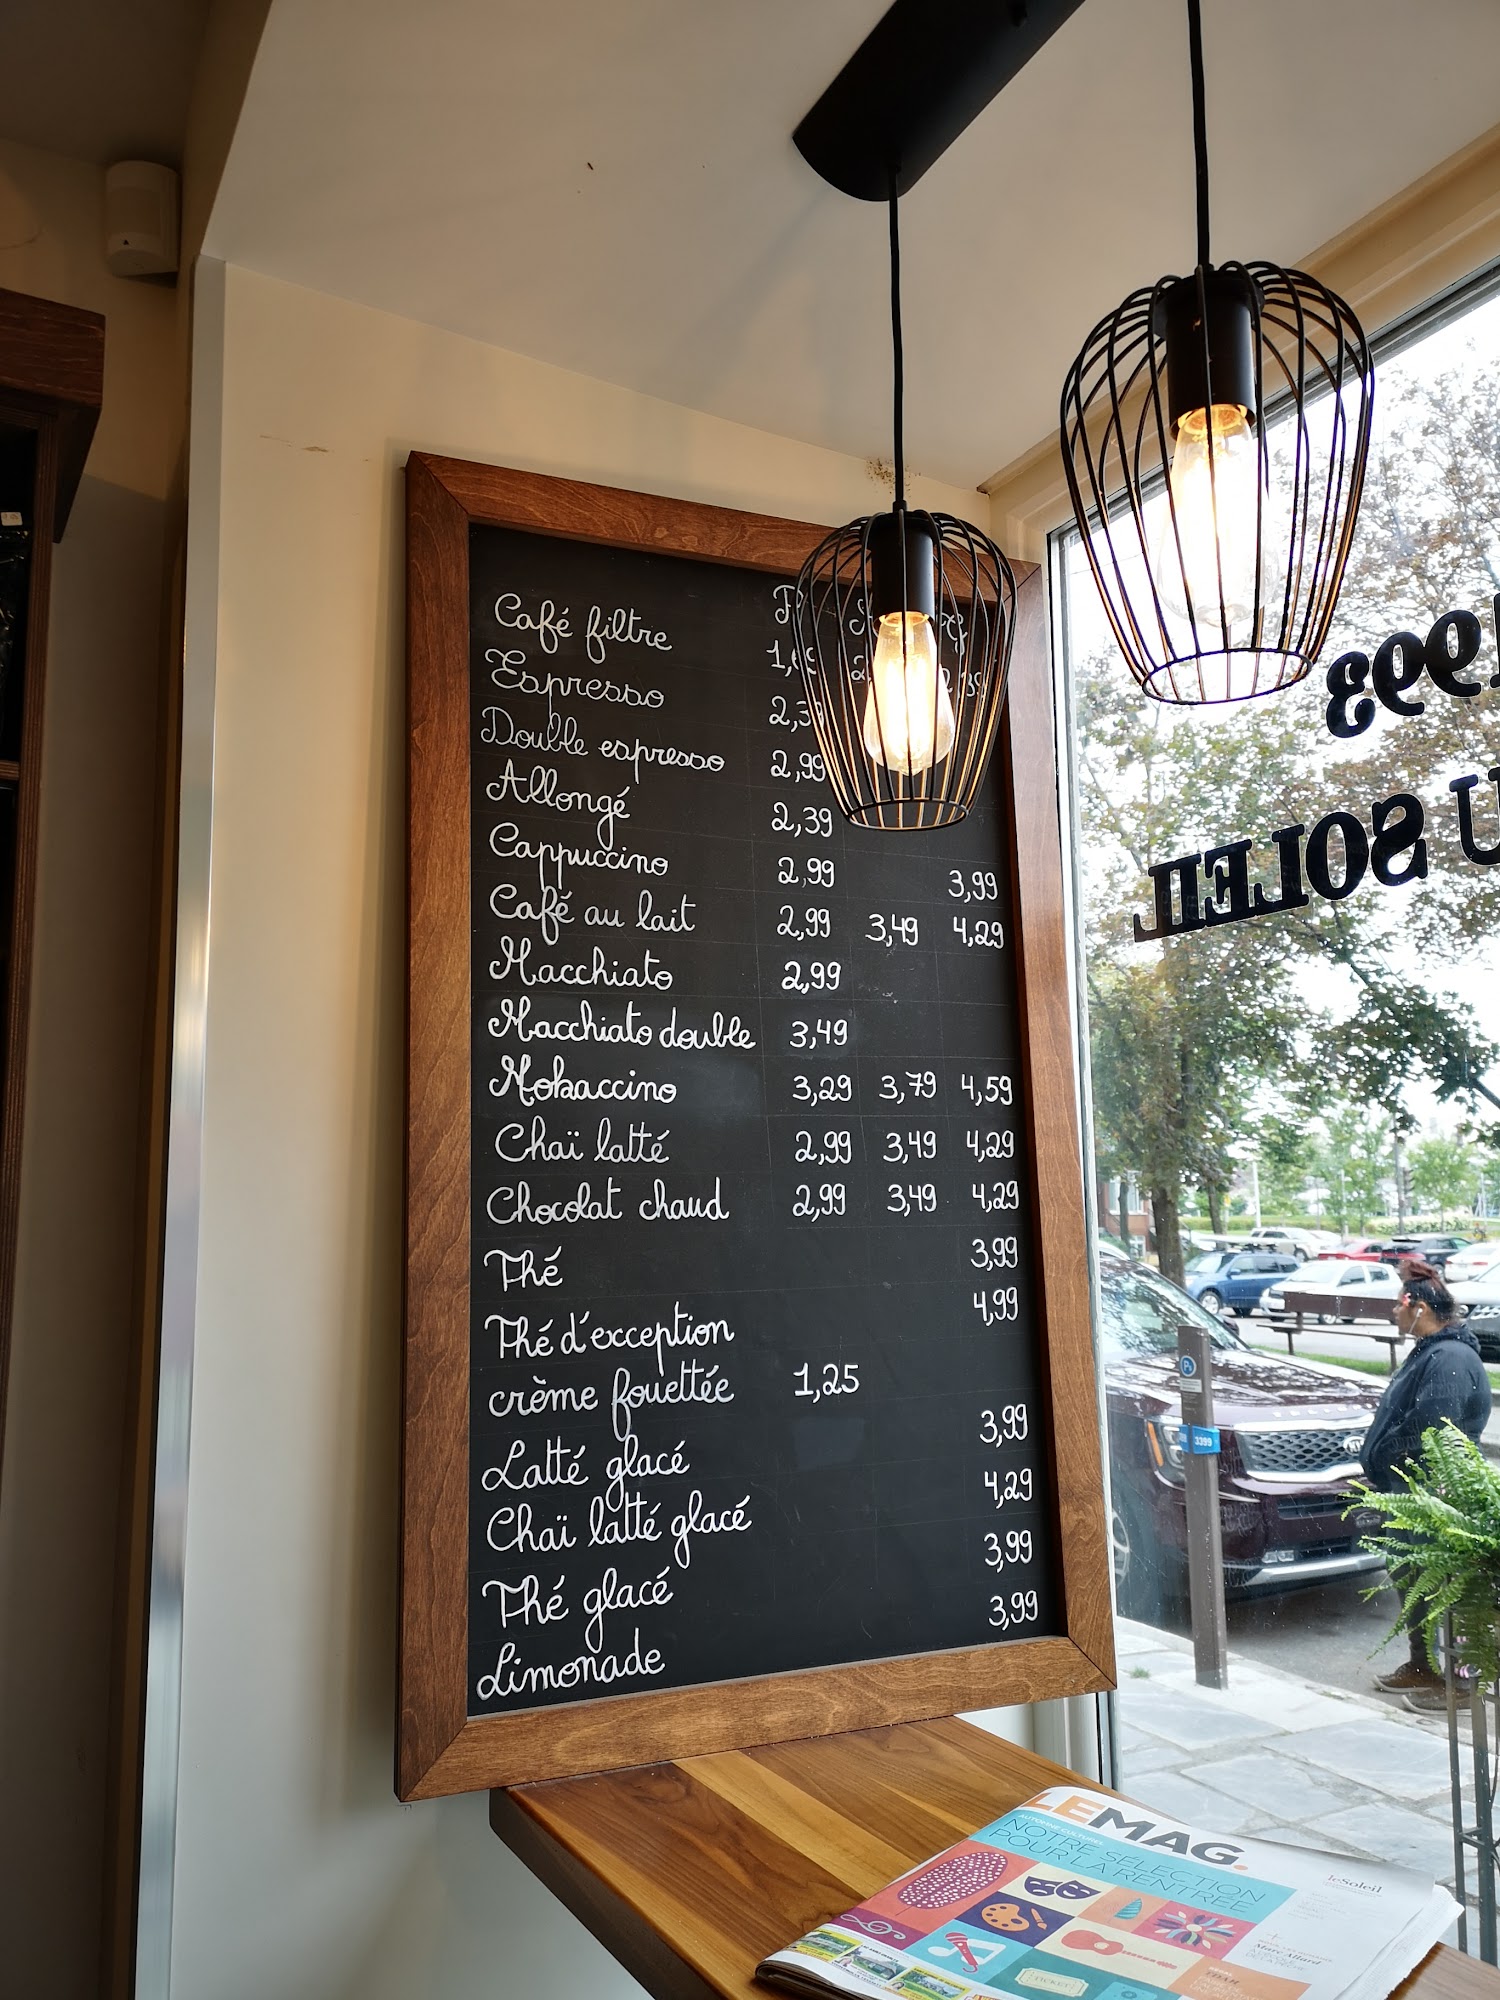 Café filtre
Espresso
Double espresso 2,99
Allongé 2,39
Cappuccino 2,99 3,99
Café au lait 2,99 3,49 4,29
Macchiato 2,99
Macchiato double 3,49
Mokaccino 3,29 3,79 4,59
Chaï latté 2,99 3,49 4,29
Chocolat chaud 2,99 3,49 4,29
Thé 3,99
Thé d'exception 4,99
crème fouettée 1,25
Latté glacé 3,99
Chaï latté glacé 4,29
Thé glacé 3,99
Limonade 3,99
1993
SOLEIL
3399
LEMAG.
AUTOMNE CULTUREL
NOTRE SÉLECTION
POUR LA RENTRÉE
leSoleil
Marc Allard